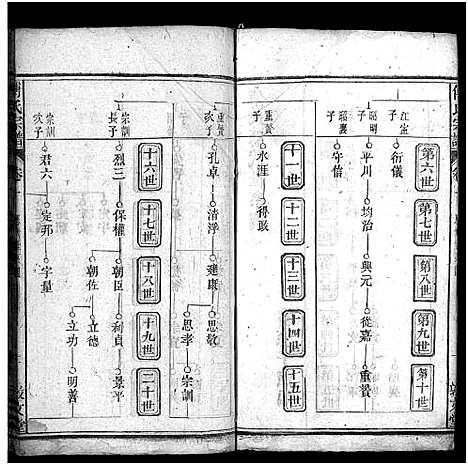 第六世
第七世
第八世
第九世
第十世
江宝子
衍儀
子
平川
均治
與元
從嘉
重贊
守信
重贊子
十一世
十二世
十三世
十四世
十五世
永涯
得敢
重贊次子
孔卓
清浮
建康
思敬
思孝
宗訓
十六世
十七世
十八世
十九世
二十世
宗訓長子
烈三
保權
朝臣
利貞
景平
朝佐
立德
立功
明善
宗訓次子
君六
定邦
字量